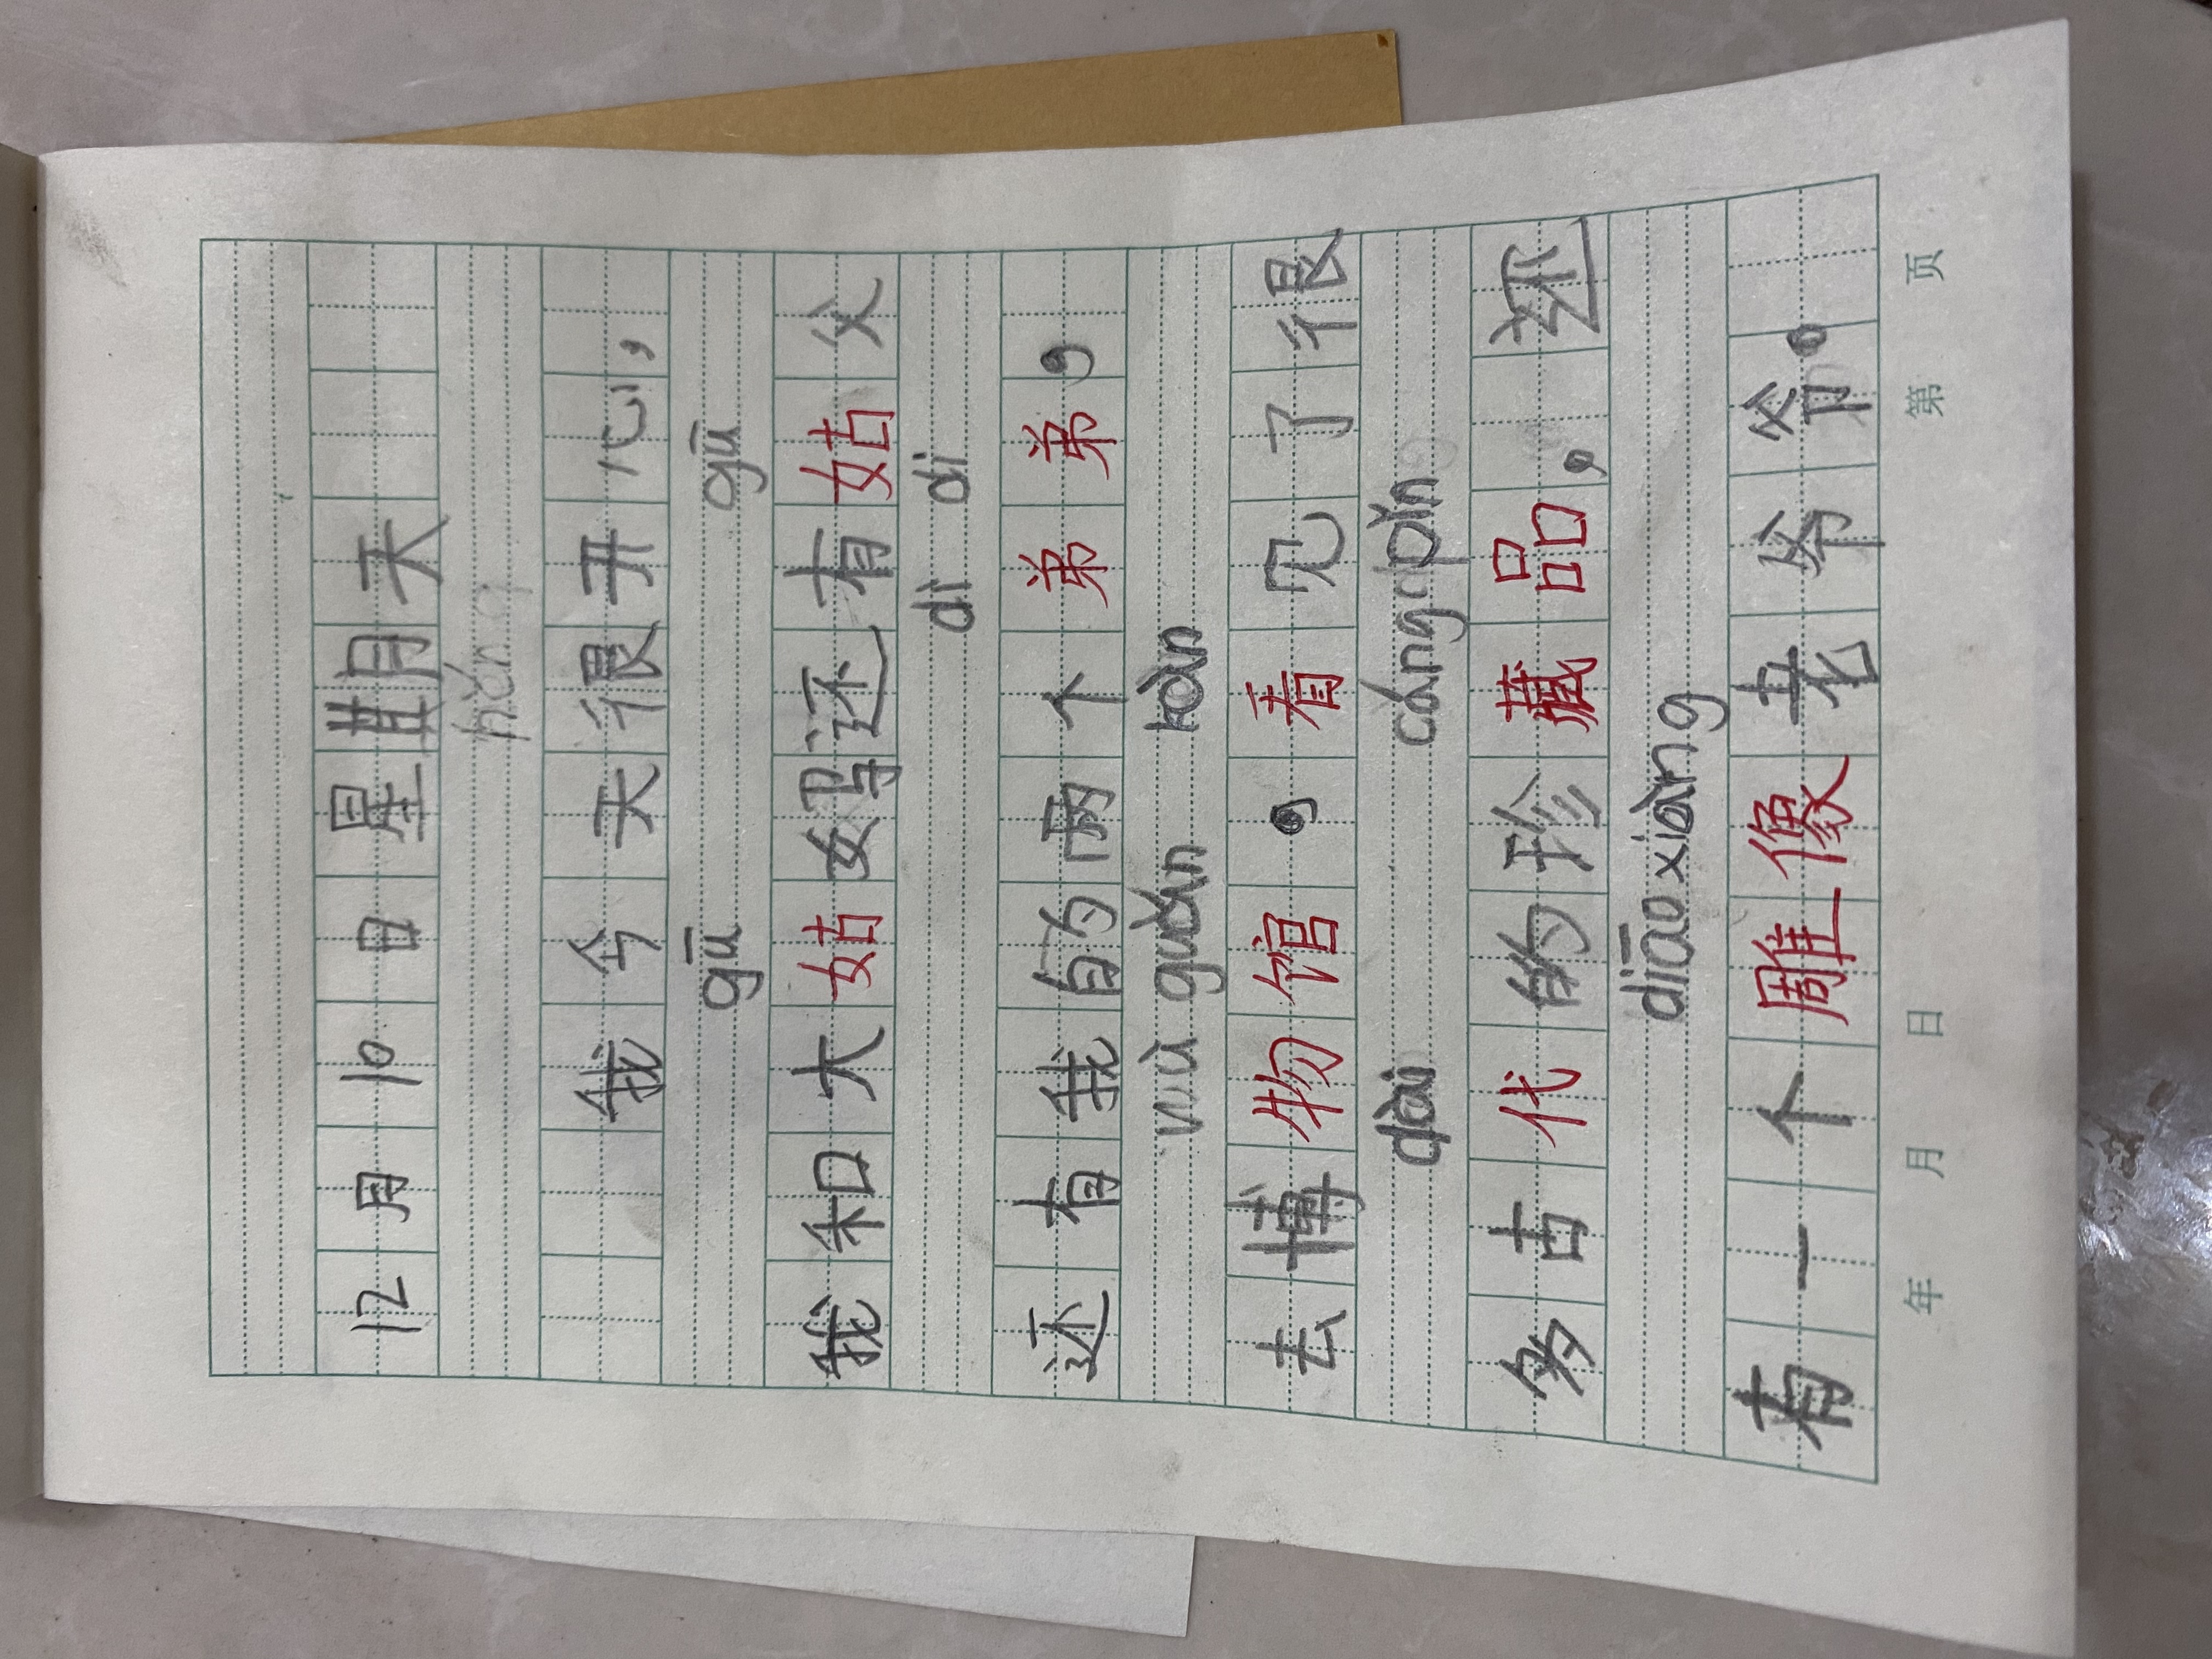 12月10日星期天
我今天很开心，
gū gū
我和大姑妈还有姑父
dì di
还有我的两个弟弟，
wù guǎn kàn
去博物馆，看见了很
dài cáng pǐn
多古代的珍藏品，还
diāo xiàng
有一个雕像老爷爷。
年 月 日 第 页